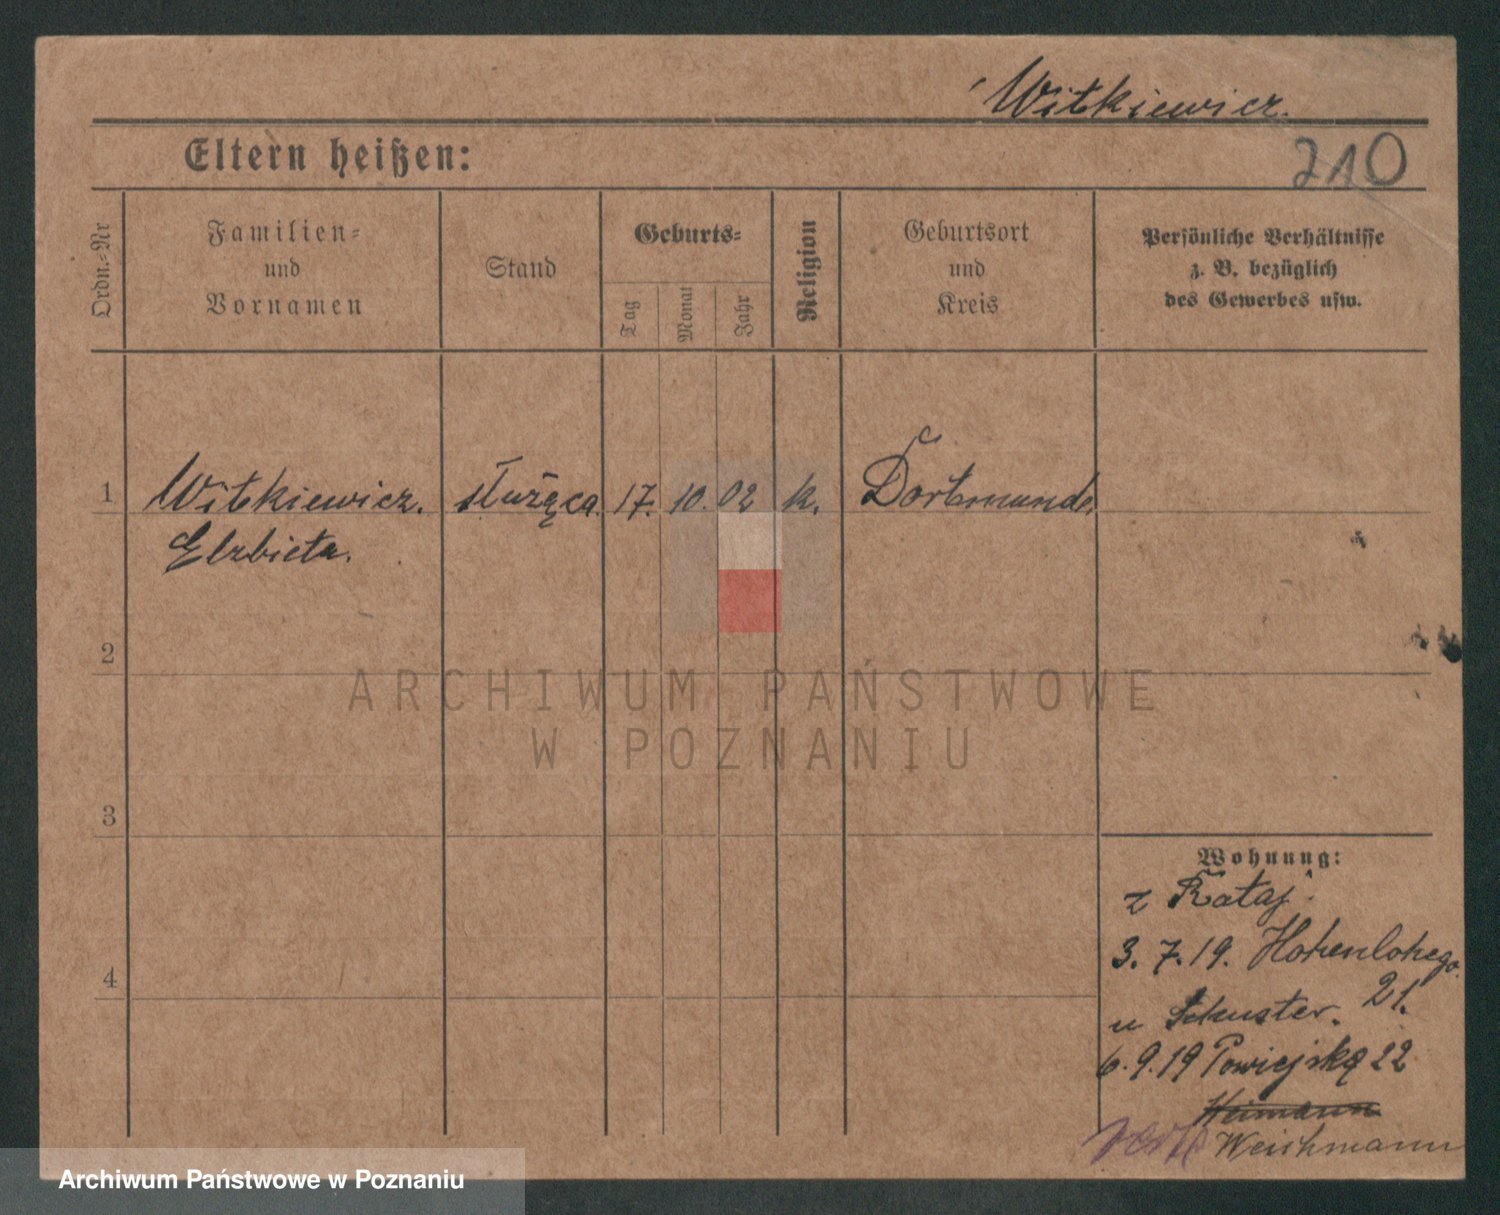 Witkiewicz.
Eltern heißen:
210
Ordn.-Nr
Familien-
und
Vornamen
Stand
Geburts-
Tag
Monat
Jahr
Religion
Geburtsort
und
Kreis
Persönliche Verhältnisse
z. B. bezüglich
des Gewerbes usw.
1 Witkiewicz. służąca. 17. 10. 02 k. Dortmund.
Elzbieta.
2
ARCHIWUM PAŃSTWOWE
W POZNANIU
3
Wohnung:
z Rataj.
4
3. 7. 19. Hohenlohego.
21.
u Schuster.
6. 9. 19 Powiejską 22
Heimann
Weichmann
Archiwum Państwowe w Poznaniu